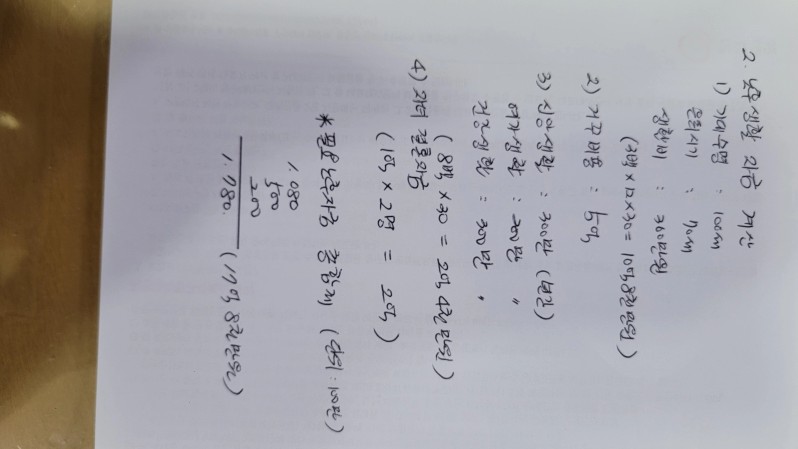 2. 노후생활 자금 계산
1) 기대수명 : 100세
은퇴시기 : 70세
생활비 : 300만원
(3백 × 12 × 30 = 10억8천만원)
2) 거주비용 : 5억
3) 신앙생활 : 300만 (년간)
여가생활 : 300만 "
건강생활 : 300만 "
(8백 × 30 = 2억 4천만원)
4) 자녀 결혼자금
(1억 × 2명 = 2억)
* 필요 노후자금 총합계 (단위:100만)
1.080
500
200
1.780. (17억 8천만원)